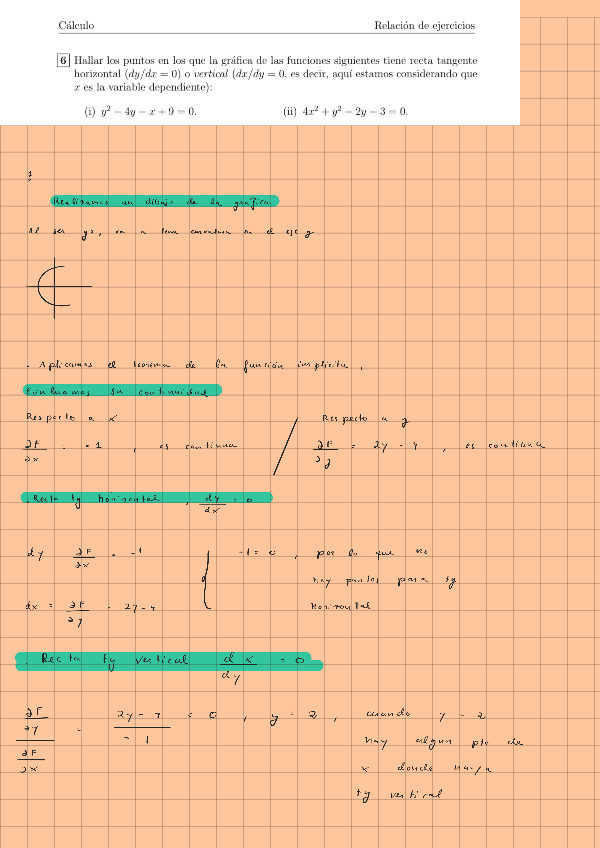 Cálculo Relación de ejercicios
6 Hallar los puntos en los que la gráfica de las funciones siguientes tiene recta tangente
horizontal (dy/dx = 0) o vertical (dx/dy = 0, es decir, aquí estamos considerando que
x es la variable dependiente):
(i) y² − 4y − x + 9 = 0. (ii) 4x² + y² − 2y − 3 = 0.
1
Realizamos un dibujo de la gráfica
Al ser y², va a tener curvatura en el eje y
. Aplicamos el teorema de la función implícita,
Evaluamos su continuidad
Respecto a x / Respecto a y
∂F/∂x = -1 , es continua ∂F/∂y = 2y - 4 , es continua
. Recta tg horizontal , dy/dx = 0
dy ∂F/∂x = -1 -1 = 0 , por lo que no
hay puntos para tg
dx = ∂F/∂y = 2y - 4 horizontal
. Recta tg vertical dx/dy = 0
∂F/∂y / ∂F/∂x = 2y - 4 / -1 = 0 , y = 2 , cuando y = 2
hay algun pto de
x donde haya
tg vertical